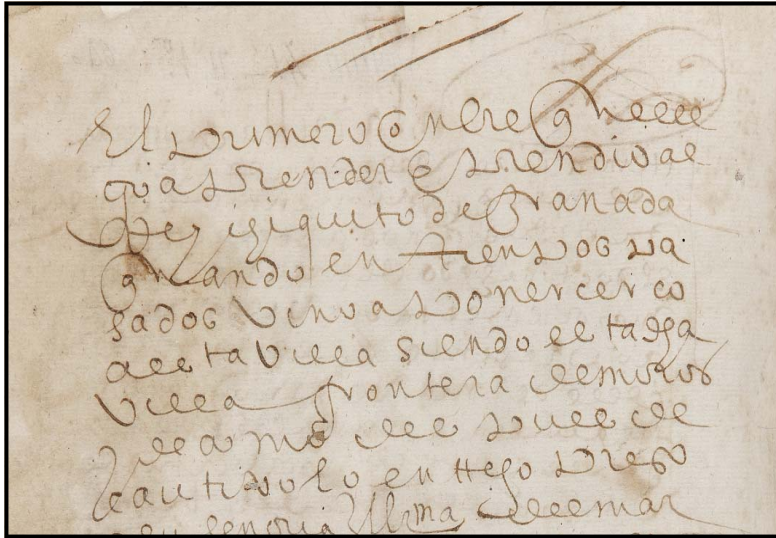 El primero onbre que lle
go a prender e prendio al
Rey chiquito de Granada
quando en tienpos pa
sados vino a poner cerco
a esta villa siendo esta dha
villa frontera de moros
llamose del pues de
cautivolo entrego preso
a su señoria Illma del mar